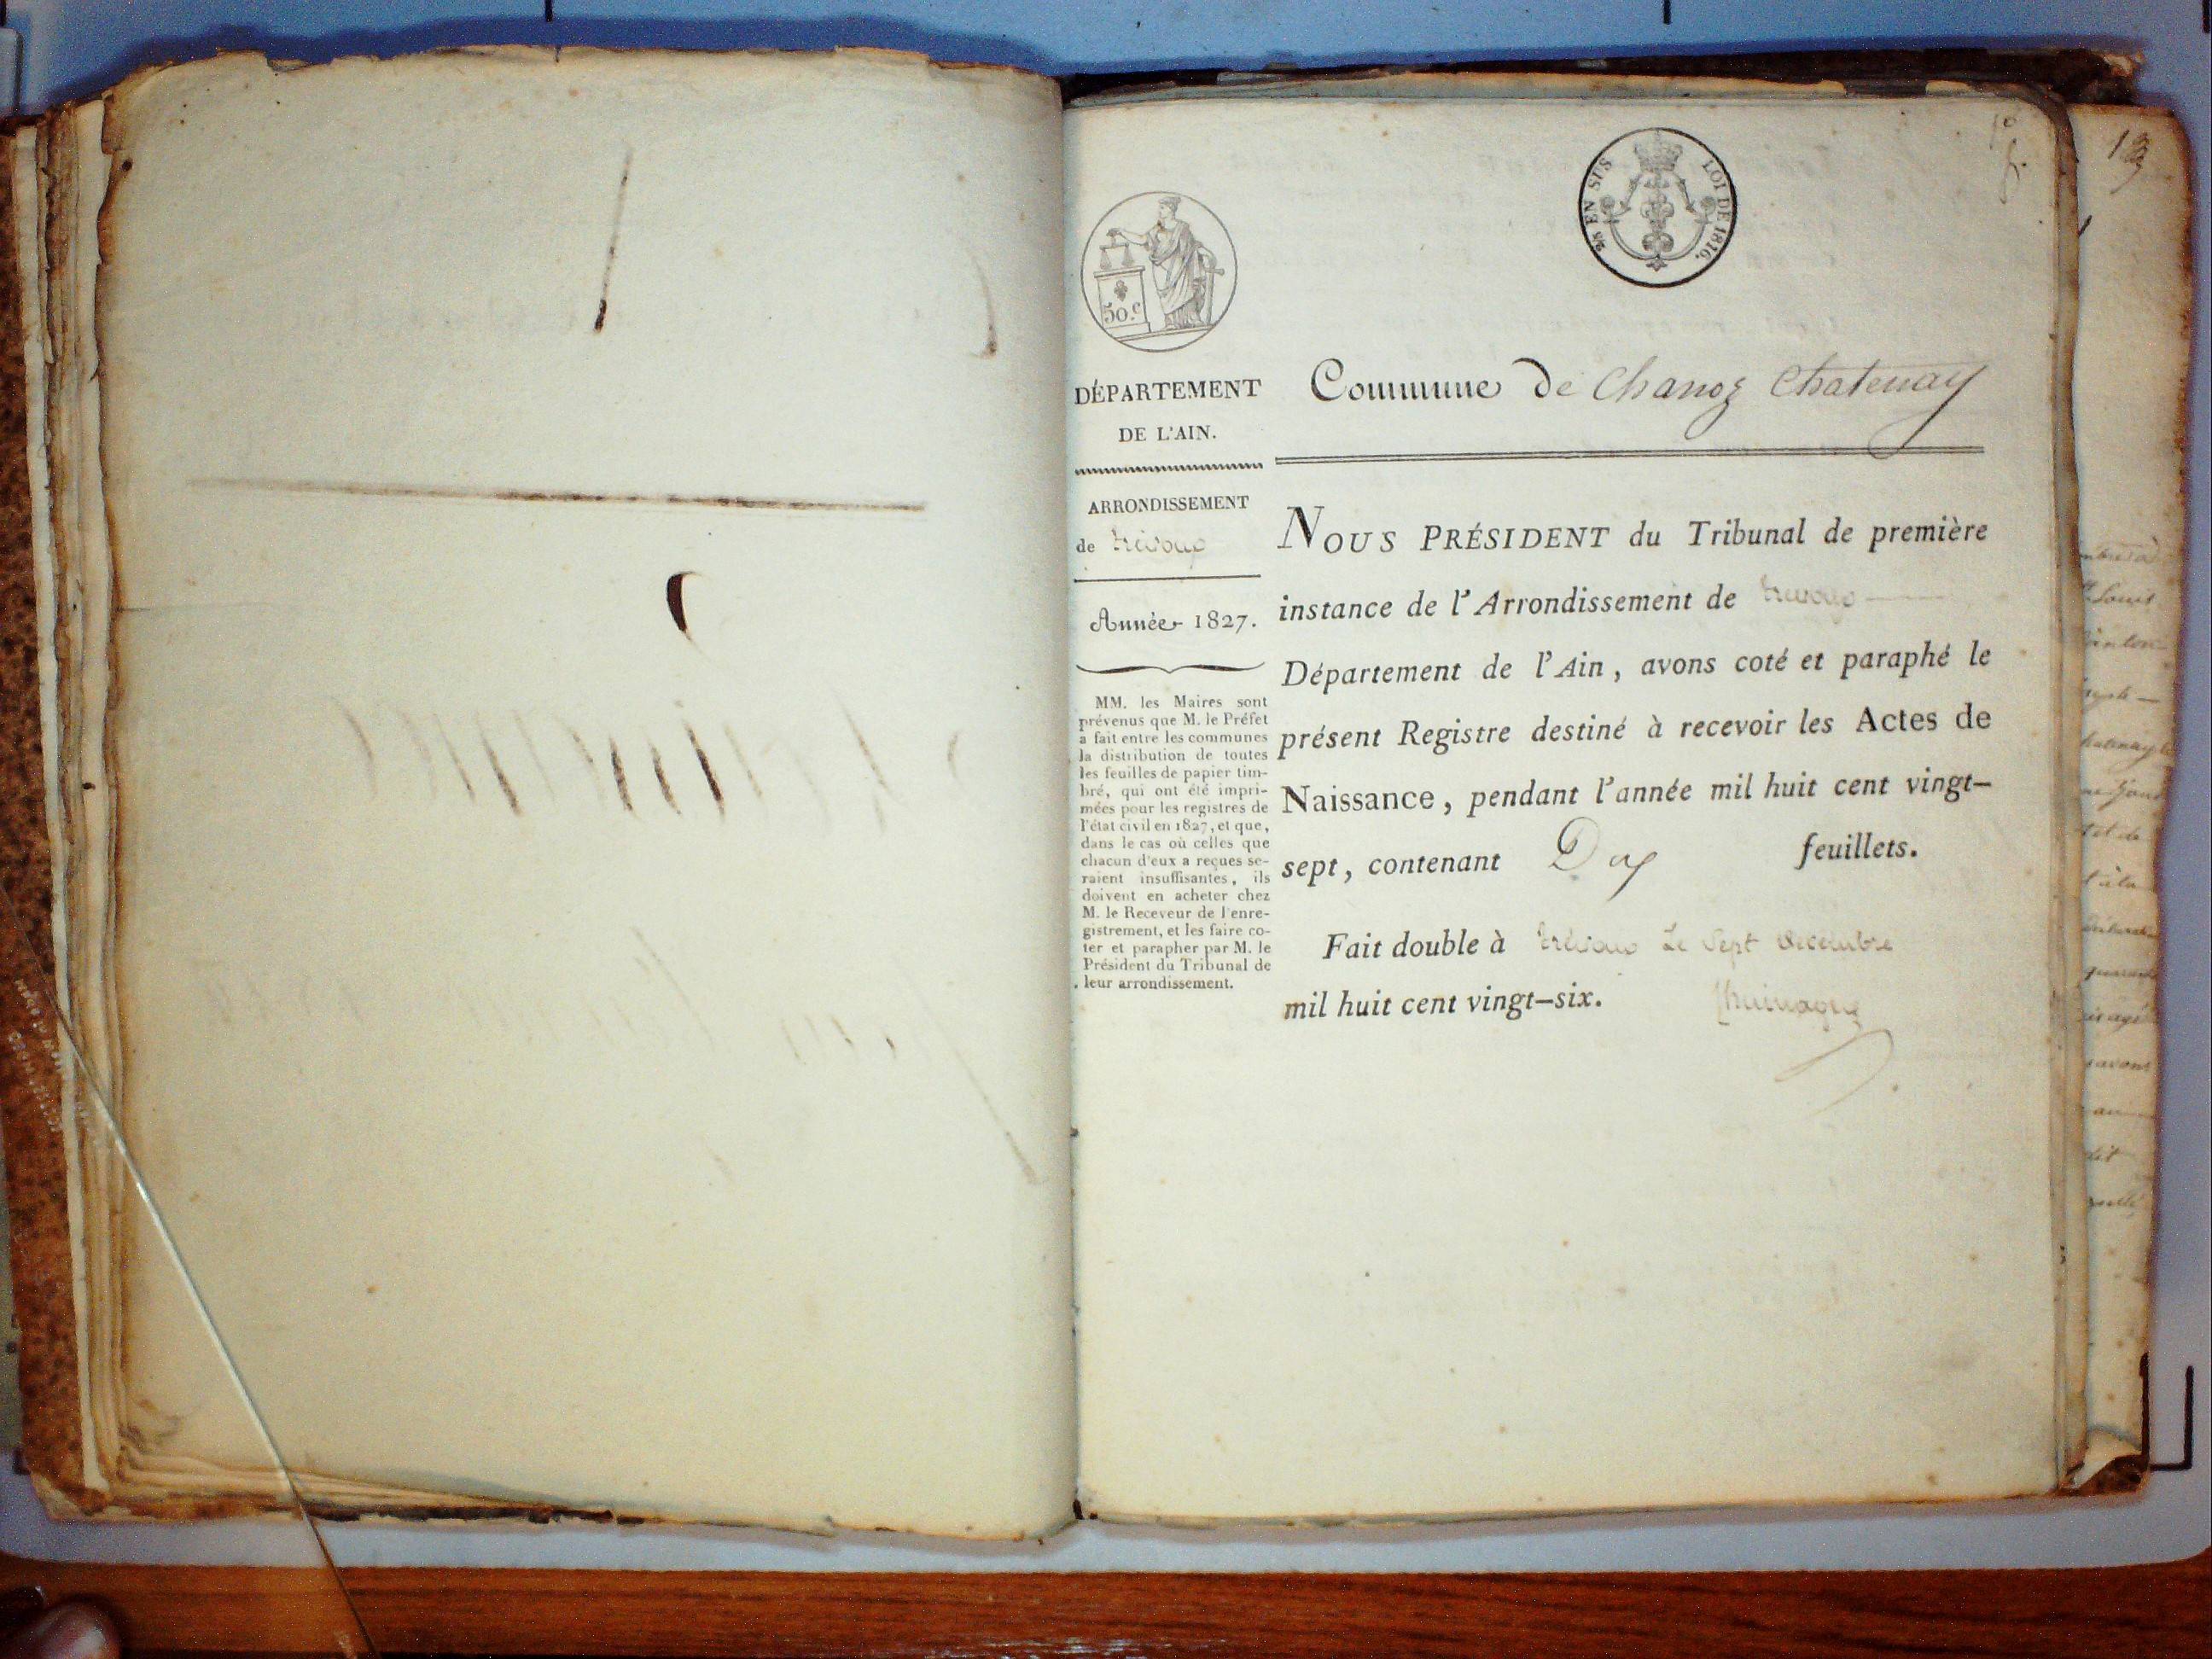 13
2/5 EN SUS
LOI DE 1816.
50.c
DÉPARTEMENT
DE L'AIN.
ARRONDISSEMENT
de trevoux
Année 1827.
MM. les Maires sont
prévenus que M. le Préfet
a fait entre les communes
la distribution de toutes
les feuilles de papier tim-
bré, qui ont été impri-
mées pour les registres de
l'état civil en 1827, et que,
dans le cas où celles que
chacun d'eux a reçues se-
raient insuffisantes, ils
doivent en acheter chez
M. le Receveur de l'enre-
gistrement, et les faire co-
ter et parapher par M. le
Président du Tribunal de
leur arrondissement.
Commune de Chanoz Chatenay
NOUS PRÉSIDENT du Tribunal de première
instance de l'Arrondissement de trevoux
Département de l'Ain, avons coté et paraphé le
présent Registre destiné à recevoir les Actes de
Naissance, pendant l'année mil huit cent vingt-
sept, contenant Dix feuillets.
Fait double à trévoux Le Sept décembre
mil huit cent vingt-six.